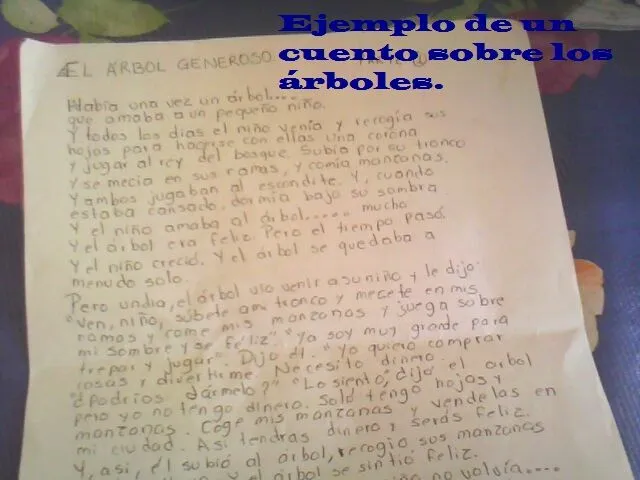 Ejemplo de un
cuento sobre los
árboles.
EL ÁRBOL GENEROSO
PARTE
Había una vez un árbol....
que amaba a un pequeño niño.
Y todos los dias el niño venía y recogía sus
hojas para hacerse con ellas una corona
y jugar al rey del bosque. Subía por su tronco
y se mecia en sus ramas, y comía manzanas.
Y ambos jugaban al escondite. Y, cuando
estaba cansado, dormía bajo su sombra
Y el niño amaba al árbol..... mucho
Y el árbol era feliz. Pero el tiempo pasó.
Y el niño creció. Y el árbol se quedaba a
menudo solo.
Pero un dia, el árbol vio venir a su niño y le dijo:
"Ven, niño, súbete a mi tronco y mecete en mis
ramos y come mis manzanas y juega sobre
mi sombre y se féliz". "Ya soy muy grande para
trepar y jugar". Dijo él. "Yo quiero comprar
cosas y divertirme. Necesito dinero.
¿Podrios dármelo?" "Lo siento", dijo el arbol
pero yo no tengo dinero. Solo tengo hojas y
manzanas. Coge mis manzanas y vendelas en
mi ciudad. Asi tendras dinero y serás feliz.
Y, asi, él subió al árbol, recogio sus manzanas
y el árbol se sintió feliz.
no volvía....